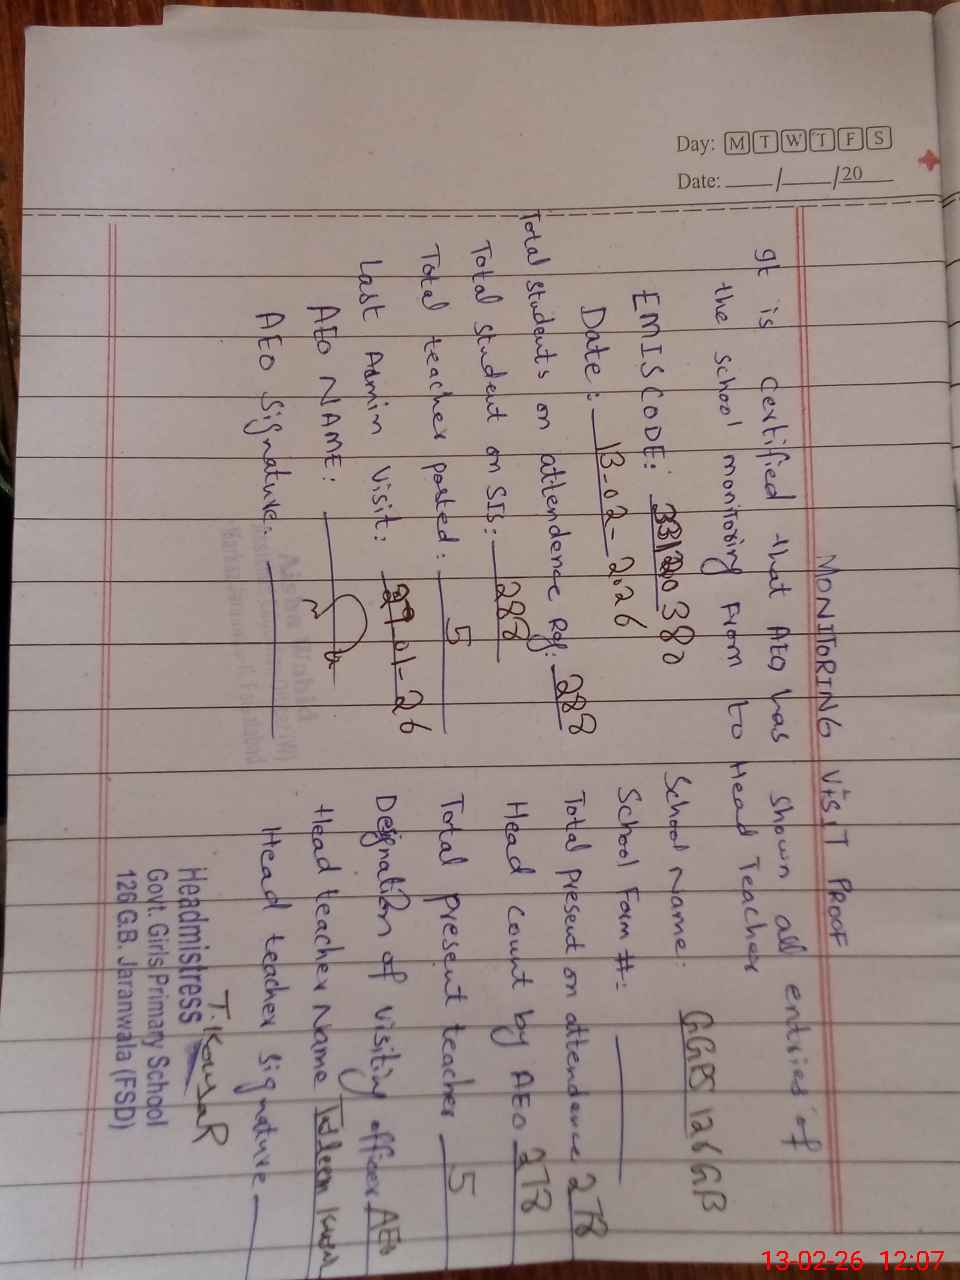 Day: M T W T F S
Date: ____/____/20____
MONITORING VISIT PROOF
It is certified that AEO has shown all entries of
the school monitoring From to Head Teacher
EMIS CODE: 33120380
School Name: GGPS 126 GB
Date: 13-02-2026
School Fom #:
Total students on attendence Reg: 288
Total present on attendence 278
Total student on SIS: 288
Head count by AEO 278
Total teacher posted: 5
Total present teacher 5
Last Admin visit: 29-01-26
Designation of visiting officer AEO
AEO NAME:
Head teacher Name
AEO Signature:
Head teacher signature
T. KowsaR
Headmistress
Govt. Girls Primary School
126 G.B. Jaranwala (FSD)
13-02-26 12:07